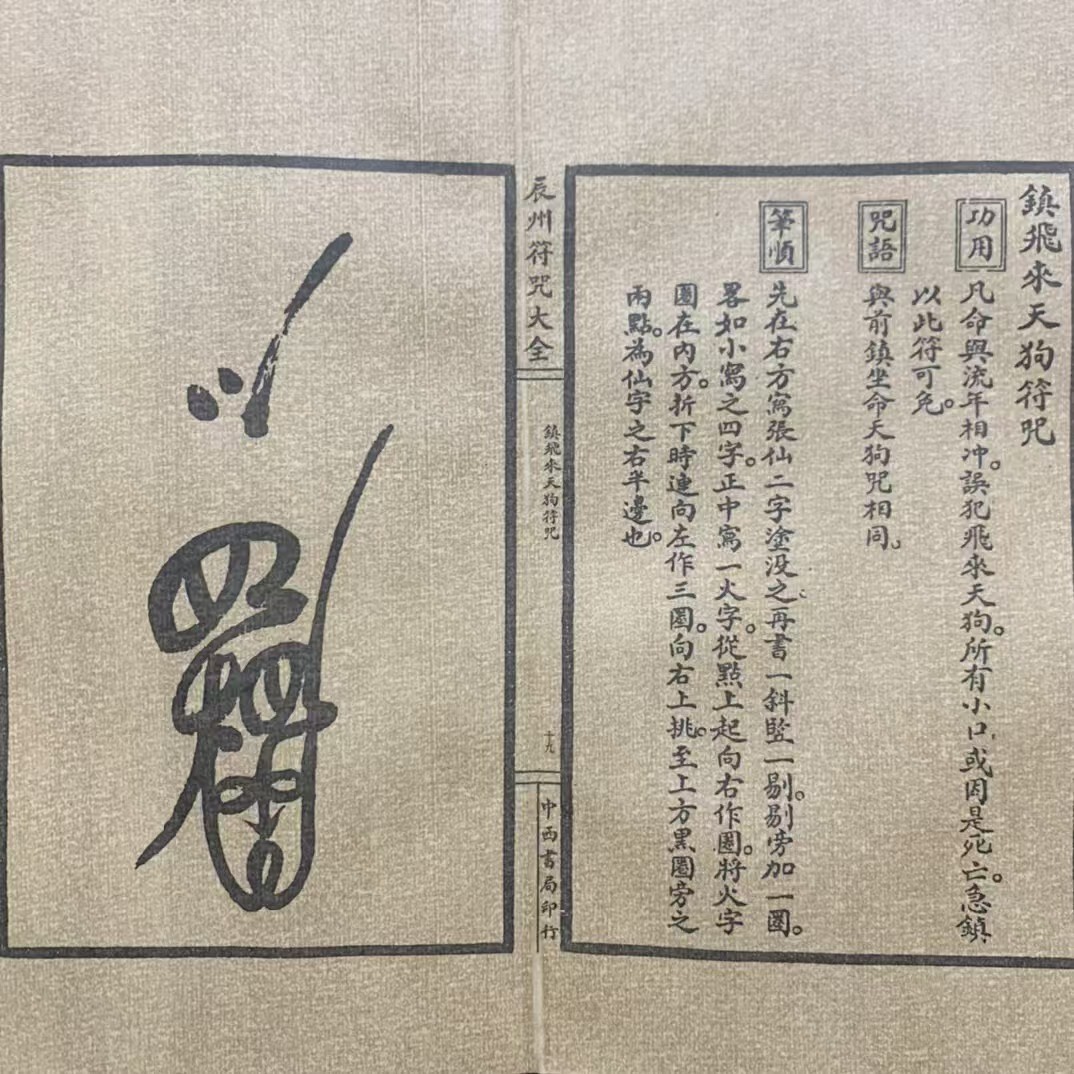 鎮飛來天狗符咒
功用
凡命與流年相冲。誤犯飛來天狗。所有小口。或因是死亡。急鎮
以此符可免。
咒語
與前鎮坐命天狗咒相同。
筆順
先在右方寫張仙二字塗没之。再書一斜豎一剔。剔旁加一圈。
畧如小寫之四字。正中寫一火字。從點上起向右作圈。將火字
圈在内方。折下時連向左作三圈。向右上挑。至上方黑圈旁之
兩點。為仙字之右半邊也。
辰州符咒大全
鎮飛來天狗符咒
十九
中西書局印行